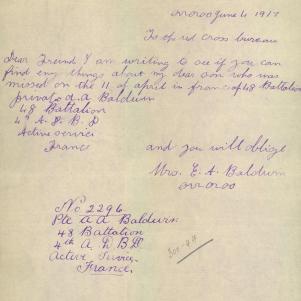 Orroroo June 4 1917
To of red Cross bureau
Dear Freind I am writing to see if you can
find eny things about my dear son who was
missed on the 11 of april in france of 48 Battalion
private A. A Baldwin
48 Battalion
4th A. D. B. D
Active service
France
and you will oblige
Mrs. E. A. Baldwin
orroroo
No 2296
Pte A A Baldwin
48 Battalion
4th A. D B.D.
Active Service.
France.